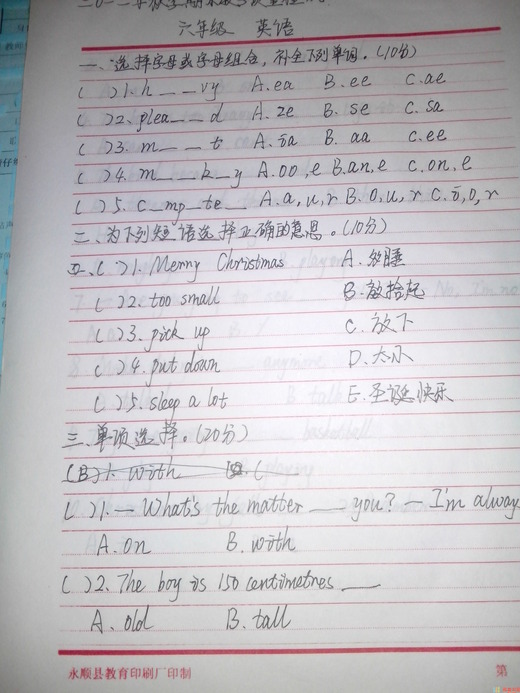 六年级 英语
一、选择字母或字母组合，补全下列单词。(10分)
( )1. h _ _ vy A. ea B. ee C. ae
( )2. plea _ _ d A. ze B. se C. sa
( )3. m _ _ t A. ia B. aa C. ee
( )4. m _ _ k _ y A. oo, e B. an, e C. on, e
( )5. c _ mp _ te _ A. a, u, r B. o, u, r C. i, o, r
二、为下列短语选择正确的意思。(10分)
( )1. Merry Christmas A. 多睡
( )2. too small B. 捡拾起
( )3. pick up C. 放下
( )4. put down D. 太小
( )5. sleep a lot E. 圣诞快乐
三、单项选择。(20分)
(B)1. with
( )1. — What's the matter __ you? — I'm alway
A. on B. with
( )2. The boy is 150 centimetres __
A. old B. tall
永顺县教育印刷厂印制 第